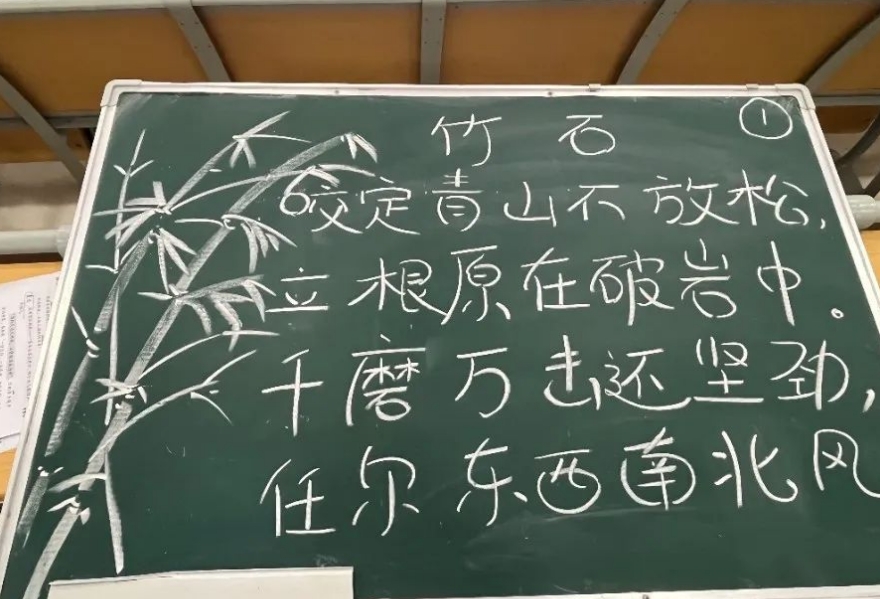 竹石
①
咬定青山不放松,
立根原在破岩中。
千磨万击还坚劲,
任尔东西南北风